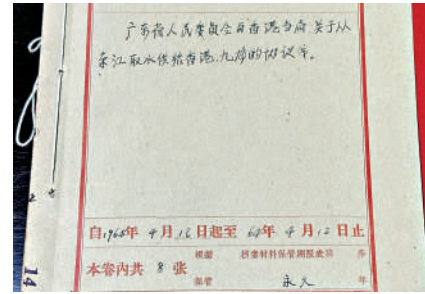 广东省人民委员会、香港当局关于从
东江取水供给香港、九龙的协议书。
自1964年4月16日起至64年4月12日止
本卷内共8张
根据
档案材料保管期限表第
条
保管
永久
年
14